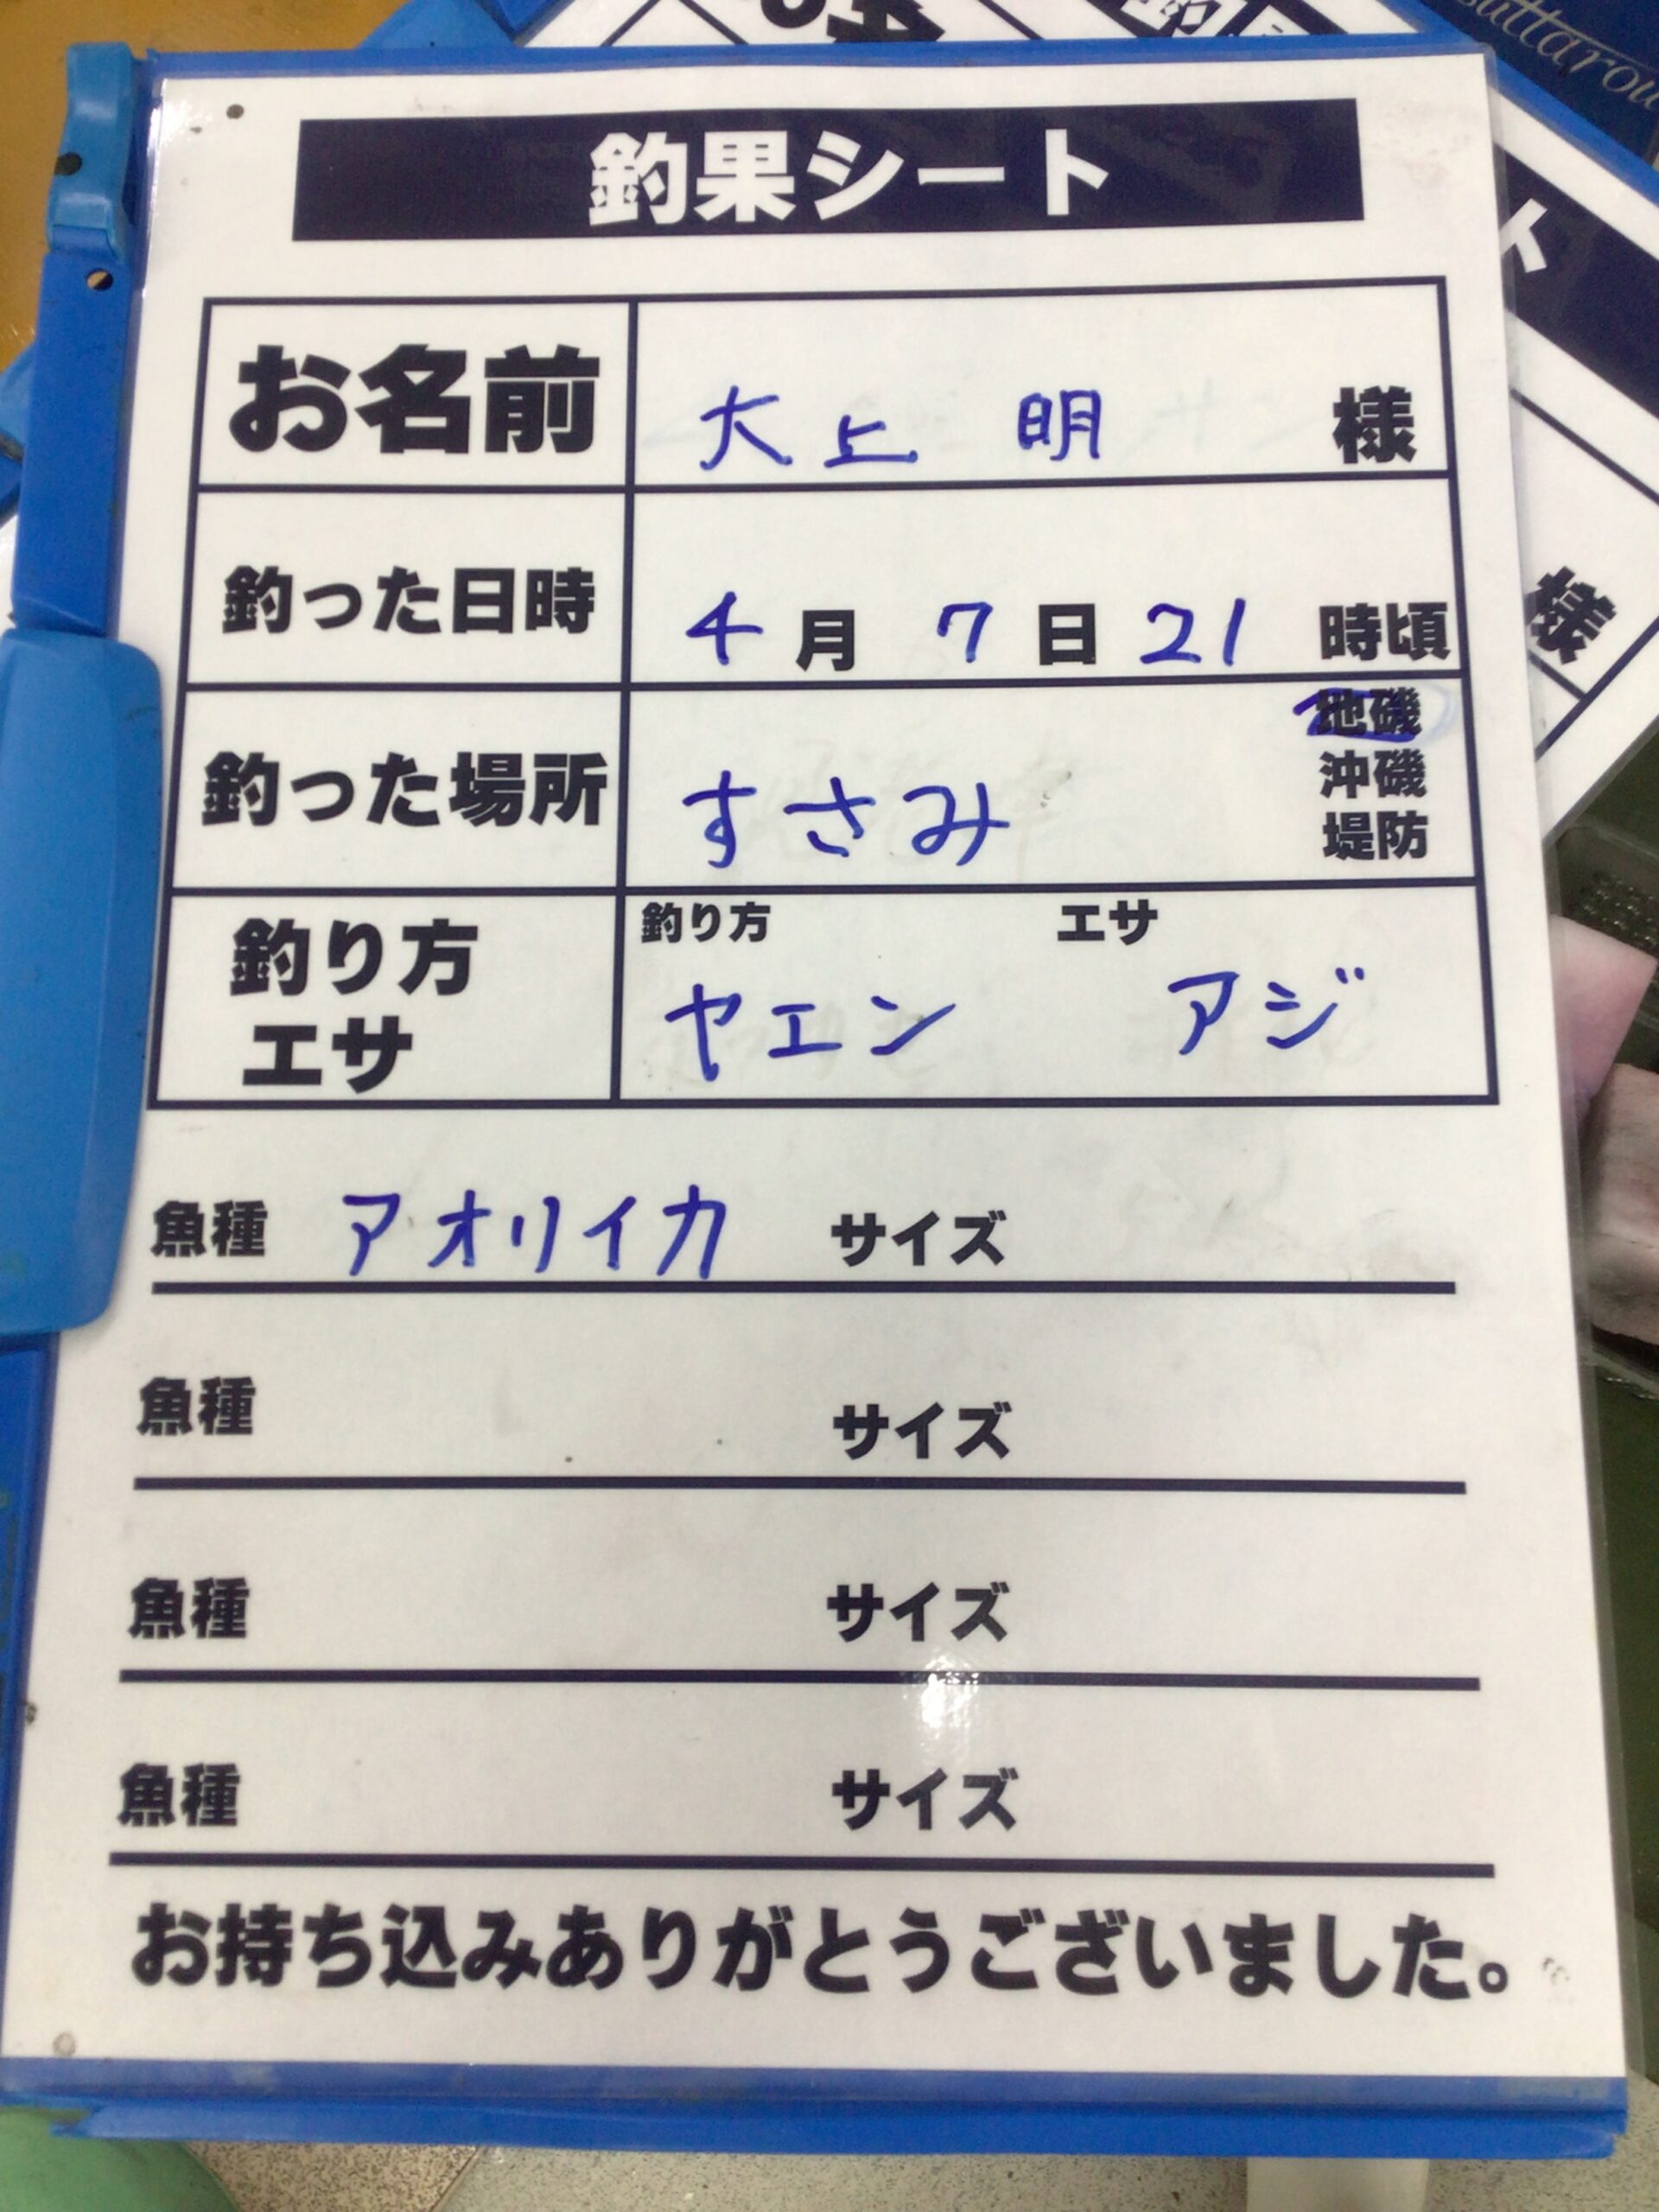 釣果シート
お名前 大上 明 様
釣った日時 4月 7日 21 時頃
釣った場所 すさみ 地磯 沖磯 堤防
釣り方 エサ
釣り方 ヤエン エサ アジ
魚種 アオリイカ サイズ
魚種 サイズ
魚種 サイズ
魚種 サイズ
お持ち込みありがとうございました。
ト
様